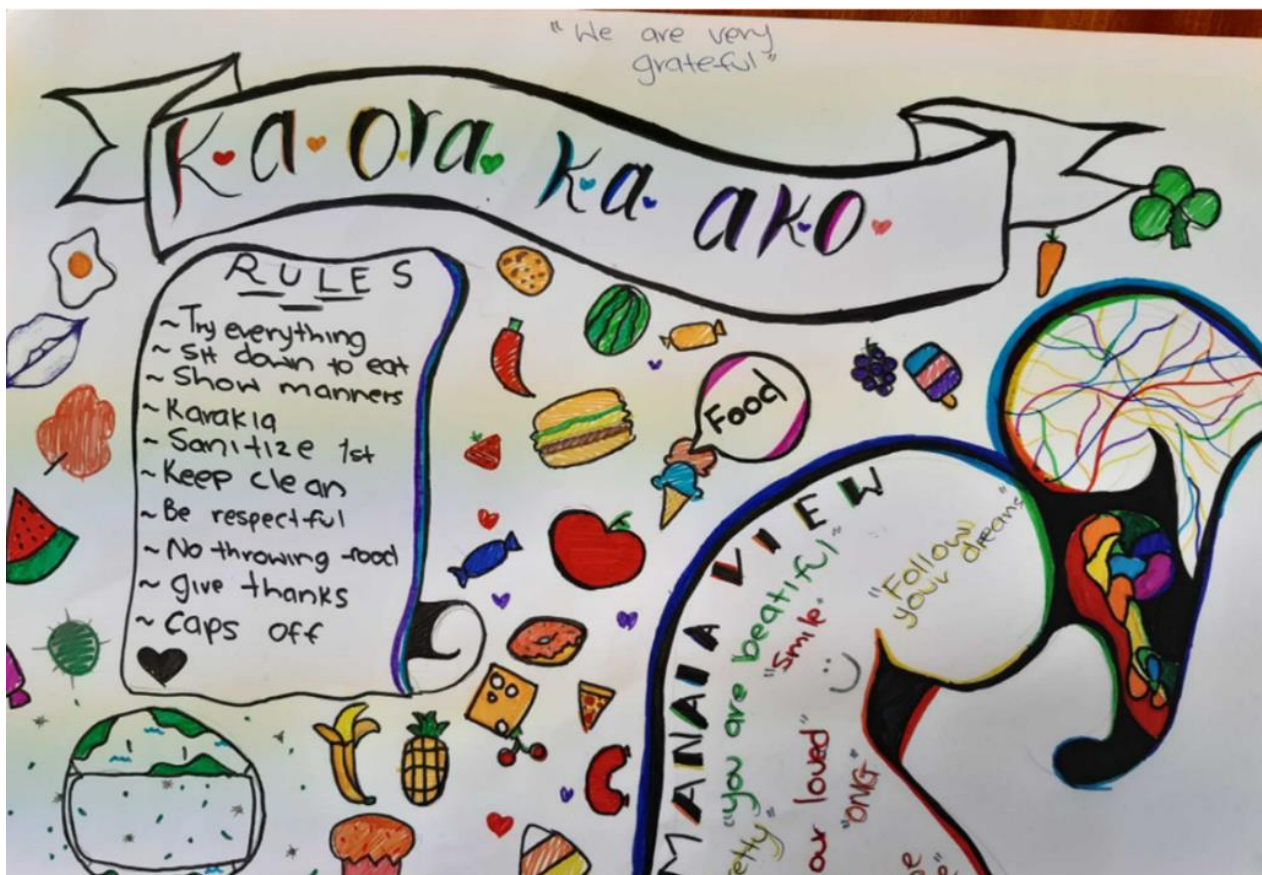 "We are very
grateful"
Ka ora ka ako
RULES
~ Try everything
~ Sit down to eat
~ Show manners
~ Karakia
~ Sanitize 1st
~ Keep clean
~ Be respectful
~ No throwing food
~ give thanks
~ caps off
Food
MANAIA VIEW
"you are beatiful"
"smile"
"Follow
your dreams"
our loved"
"OMG"